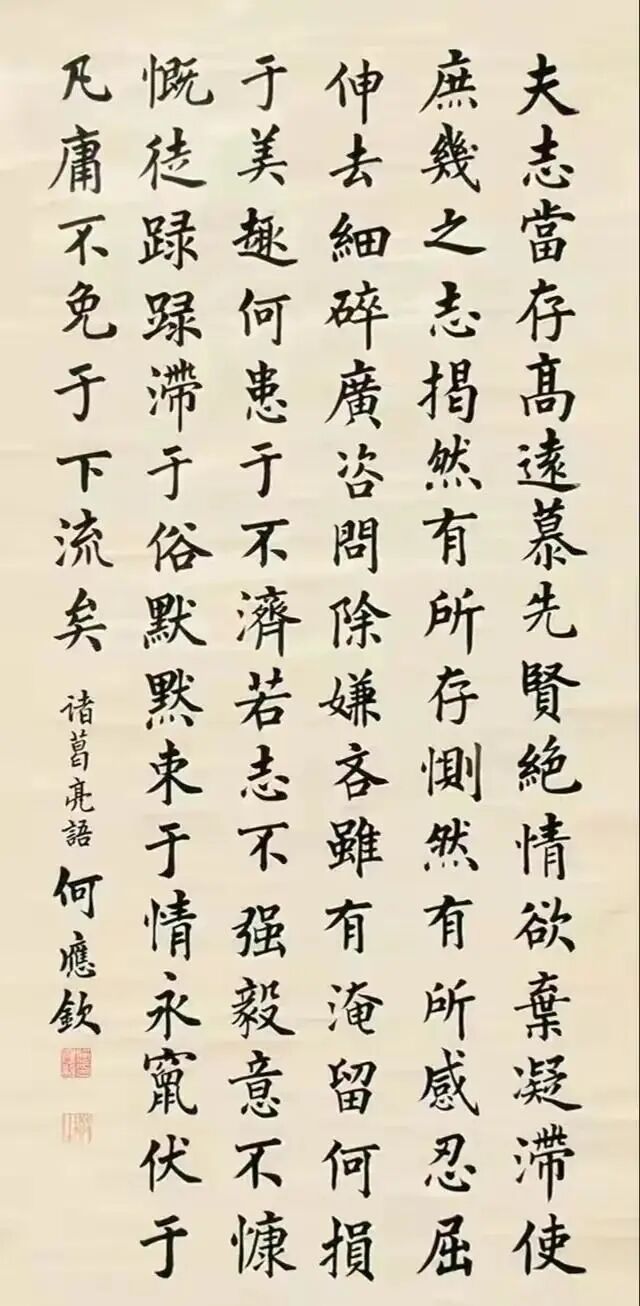 夫志當存高遠慕先賢絶情欲棄凝滯使
庶幾之志揭然有所存惻然有所感忍屈
伸去細碎廣咨問除嫌吝雖有淹留何損
于美趣何患于不濟若志不强毅意不慷
慨徒踛踛滯于俗默默束于情永竄伏于
凡庸不免于下流矣
諸葛亮語
何應欽